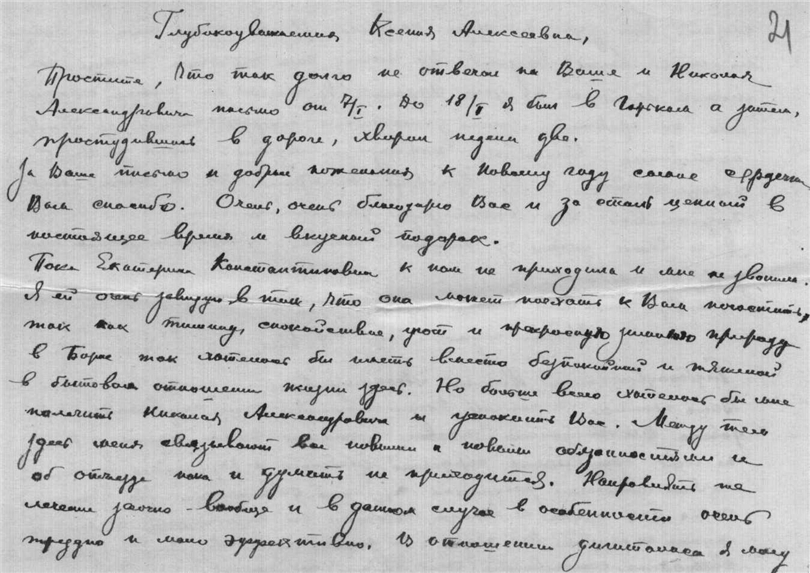 21
Глубокоуважаемая Ксения Алексеевна,
Простите, что так долго не отвечал на Ваше и Николая
Александровича письмо от 7/I. До 18/I я был в Горьком а затем,
простудившись в дороге, хворал недели две.
За Ваше письмо и добрые пожелания к Новому году самое сердечное
Вам спасибо. Очень, очень благодарю Вас и за столь ценный в
настоящее время и вкусный подарок.
Пока Екатерина Константиновна к нам не приходила и мне не звонила.
Я ей очень завидую в том, что она может поехать к Вам погостить,
так как тишину, спокойствие, уют и прекрасную зимнюю природу
в Борке так хотелось бы иметь вместо беспокойной и тяжелой
в бытовом отношении жизни здесь. Но больше всего хотелось бы мне
полечить Николая Александровича и успокоить Вас. Между тем
здесь меня связывают все новыми и новыми обязанностями и
об отъезде пока и думать не приходится. Направлять же
лечение заочно вообще и в данном случае в особенности очень
трудно и мало эффективно. В отношении дигиталиса я могу